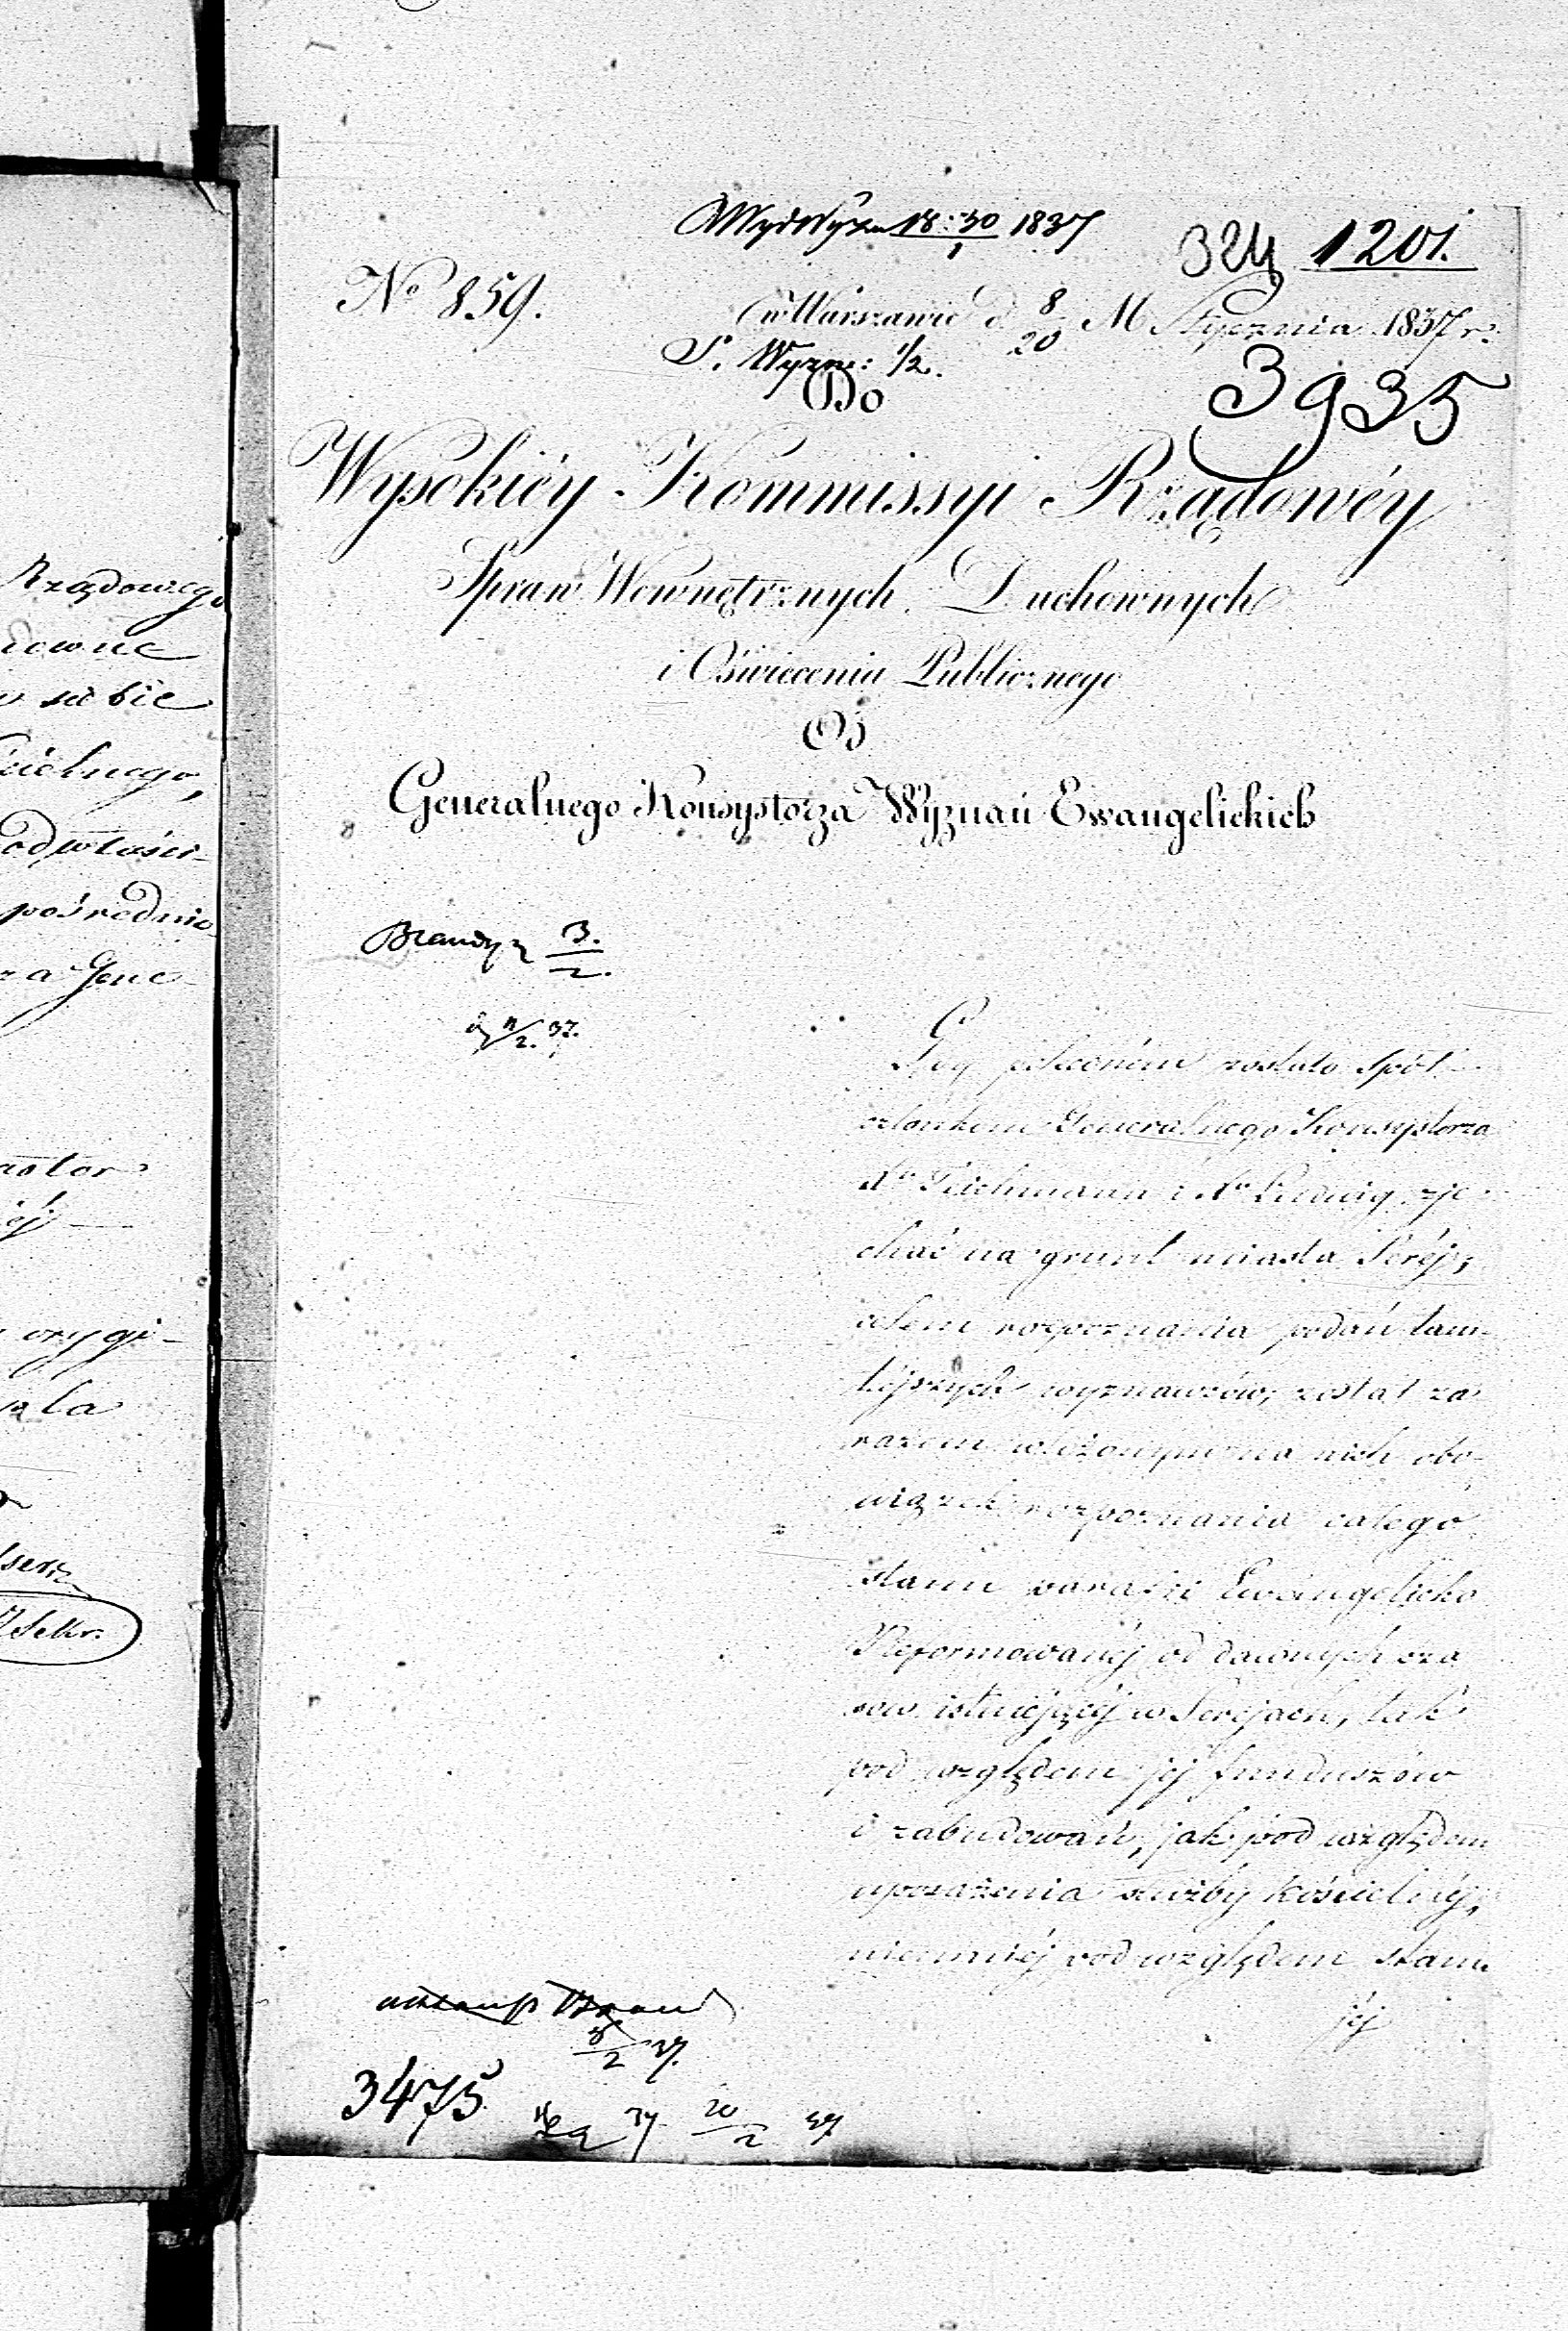 Rządowego
w sobie
pośrednio
za Gene-
orygi-
WydWyzn 18:30/1 1837
324 1201.
No 859.
w Warszawie d. 8/20 M Stycznia 1837 r.
S. Wyzn: 1/2.
Do
3935
Wysokiéy Kommissyi Rządowéy
Spraw Wewnętrznych Duchownych
i Oświecenia Publicznego
Od
Generalnego Konsystorza Wyznań Ewangelickich
3./2.
11/2. 37.
Gdy poleconém zostało Spół-
członkom Generalnego Konsystorza
Xu Teichmann i Xu Ludwig zje-
chać na grunt miasta Seréj,
celem rozpoznania podań tam-
téjszych wyznawców, został za-
razem włożonym na nich obo-
wiązek rozpoznania całego
stanu parafii Ewangelicko
Reformowanéj od dawnych cza-
sów istniejącéj w Serejach, tak
pod względem jéj funduszów
i zabudowań, jak pod względem
uposażenia służby kościelnéj,
niemniéj pod względem stanu
jéj
8/2 37.
3475
37 20/2 37